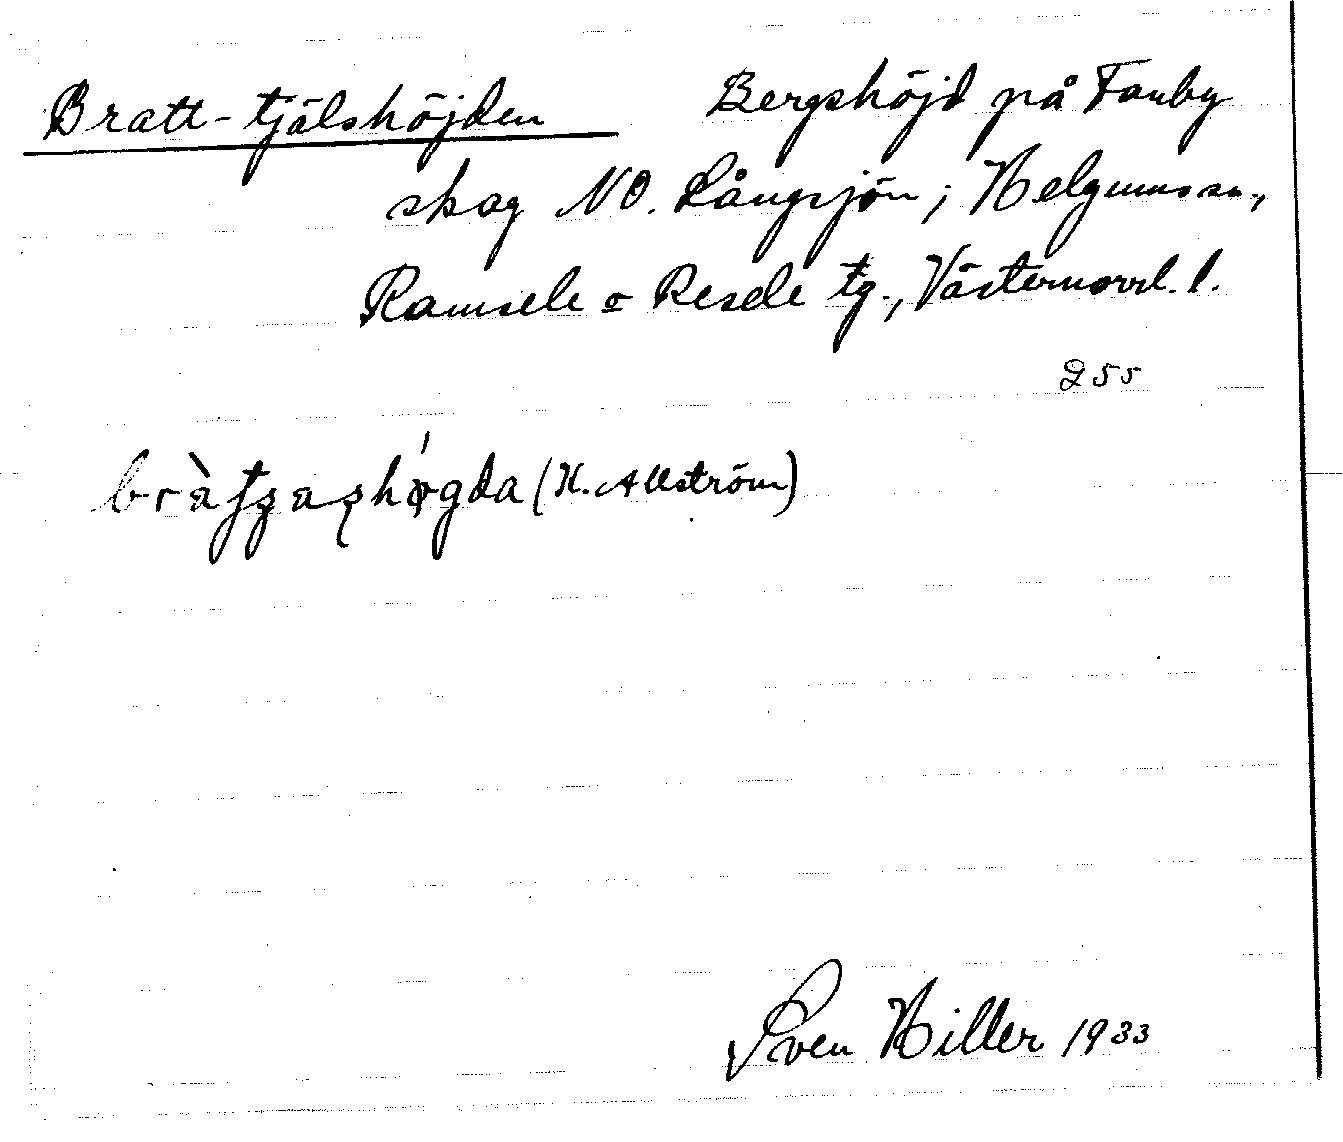 Bratt-tjälshöjden Bergshöjd på Fanby
skog NO. Långsjön; Helgums sn.,
Ramsele o Resele tg., Västernorrl. l.
255
(H. Allström)
Sven Hiller 1933